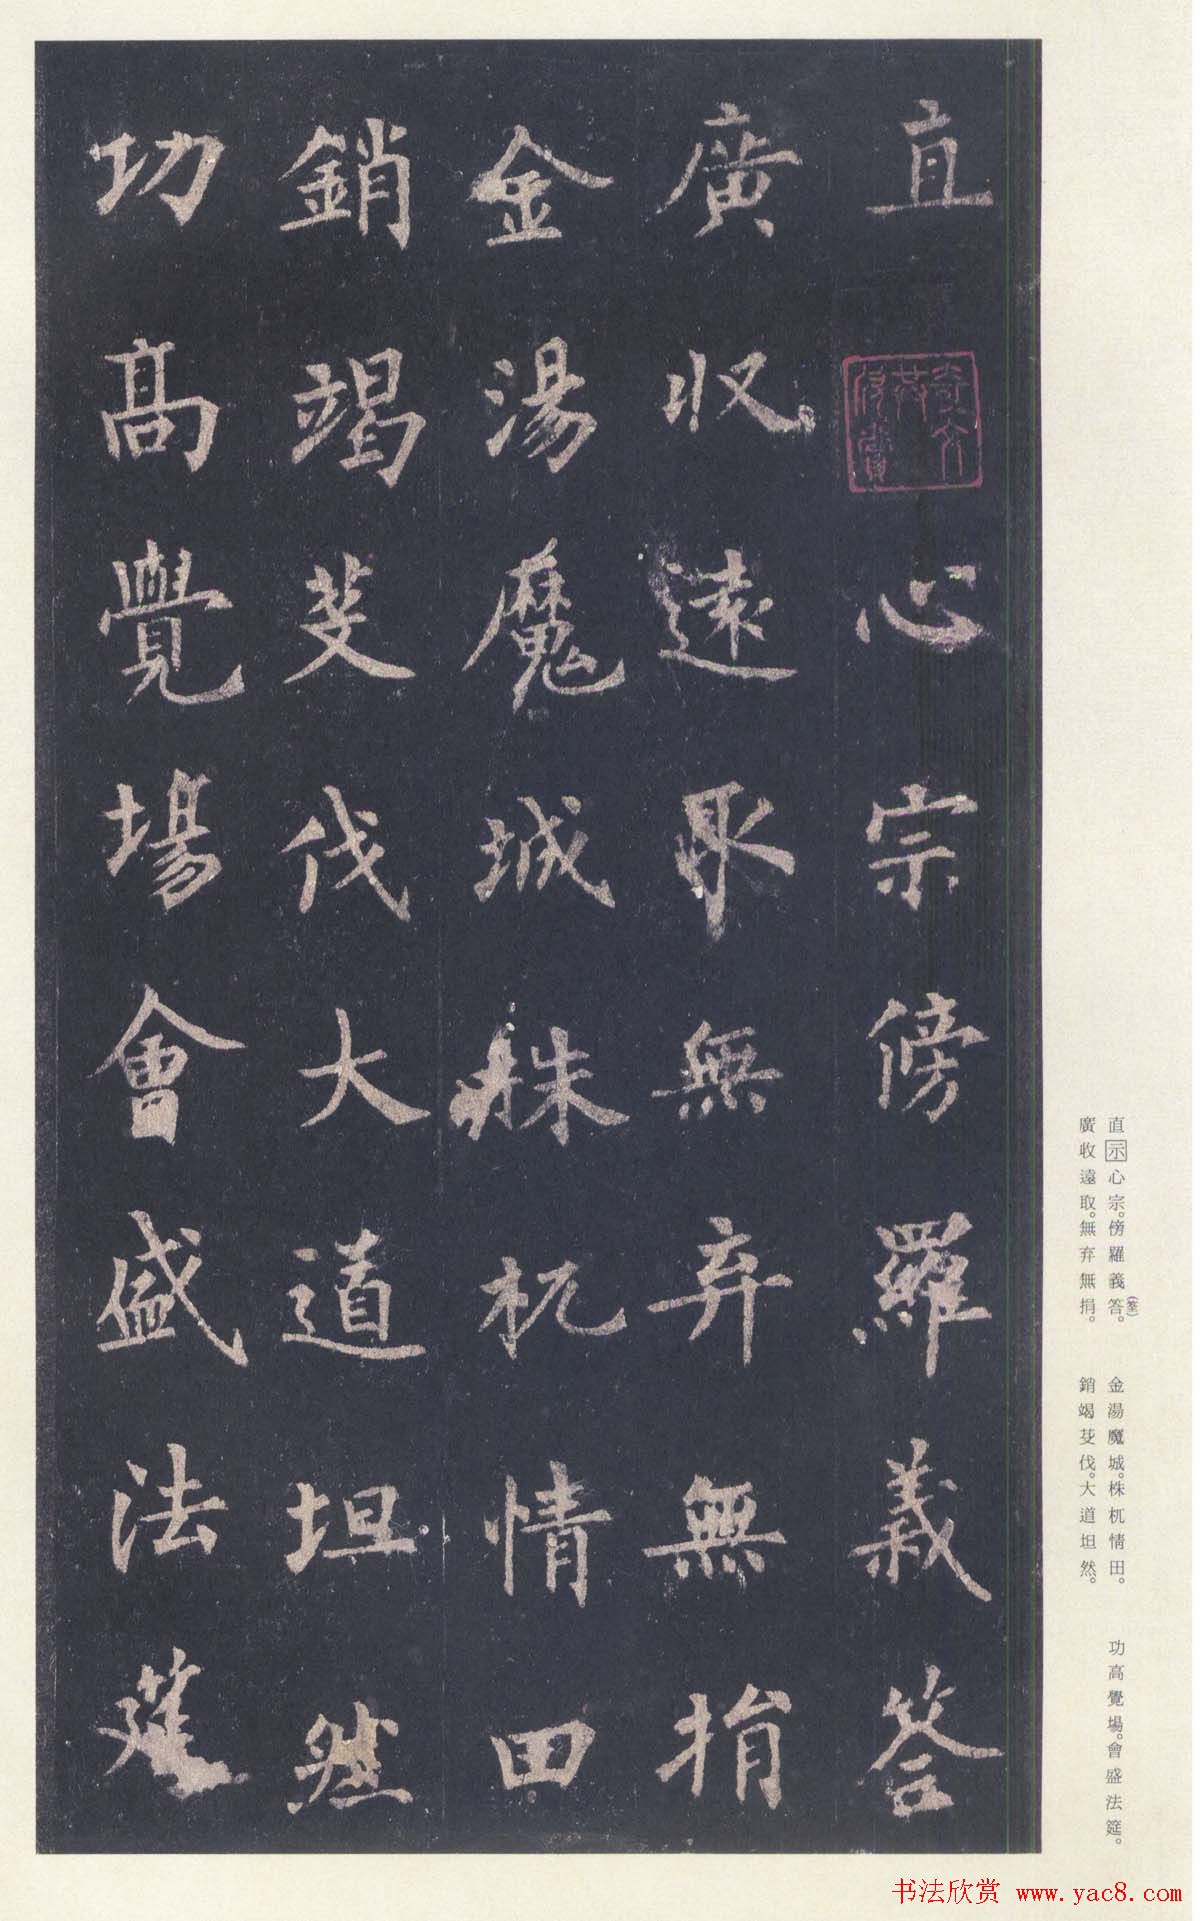 直心宗傍羅義答
廣收遠取無弃無捐
金湯魔城株杌情田
銷竭芟伐大道坦然
功高覺場會盛法筵
直示心宗。傍羅義答。(筌)
廣收遠取。無弃無捐。
金湯魔城。株杌情田。
銷竭芟伐。大道坦然。
功高覺場。會盛法筵。
书法欣赏 www.yac8.com